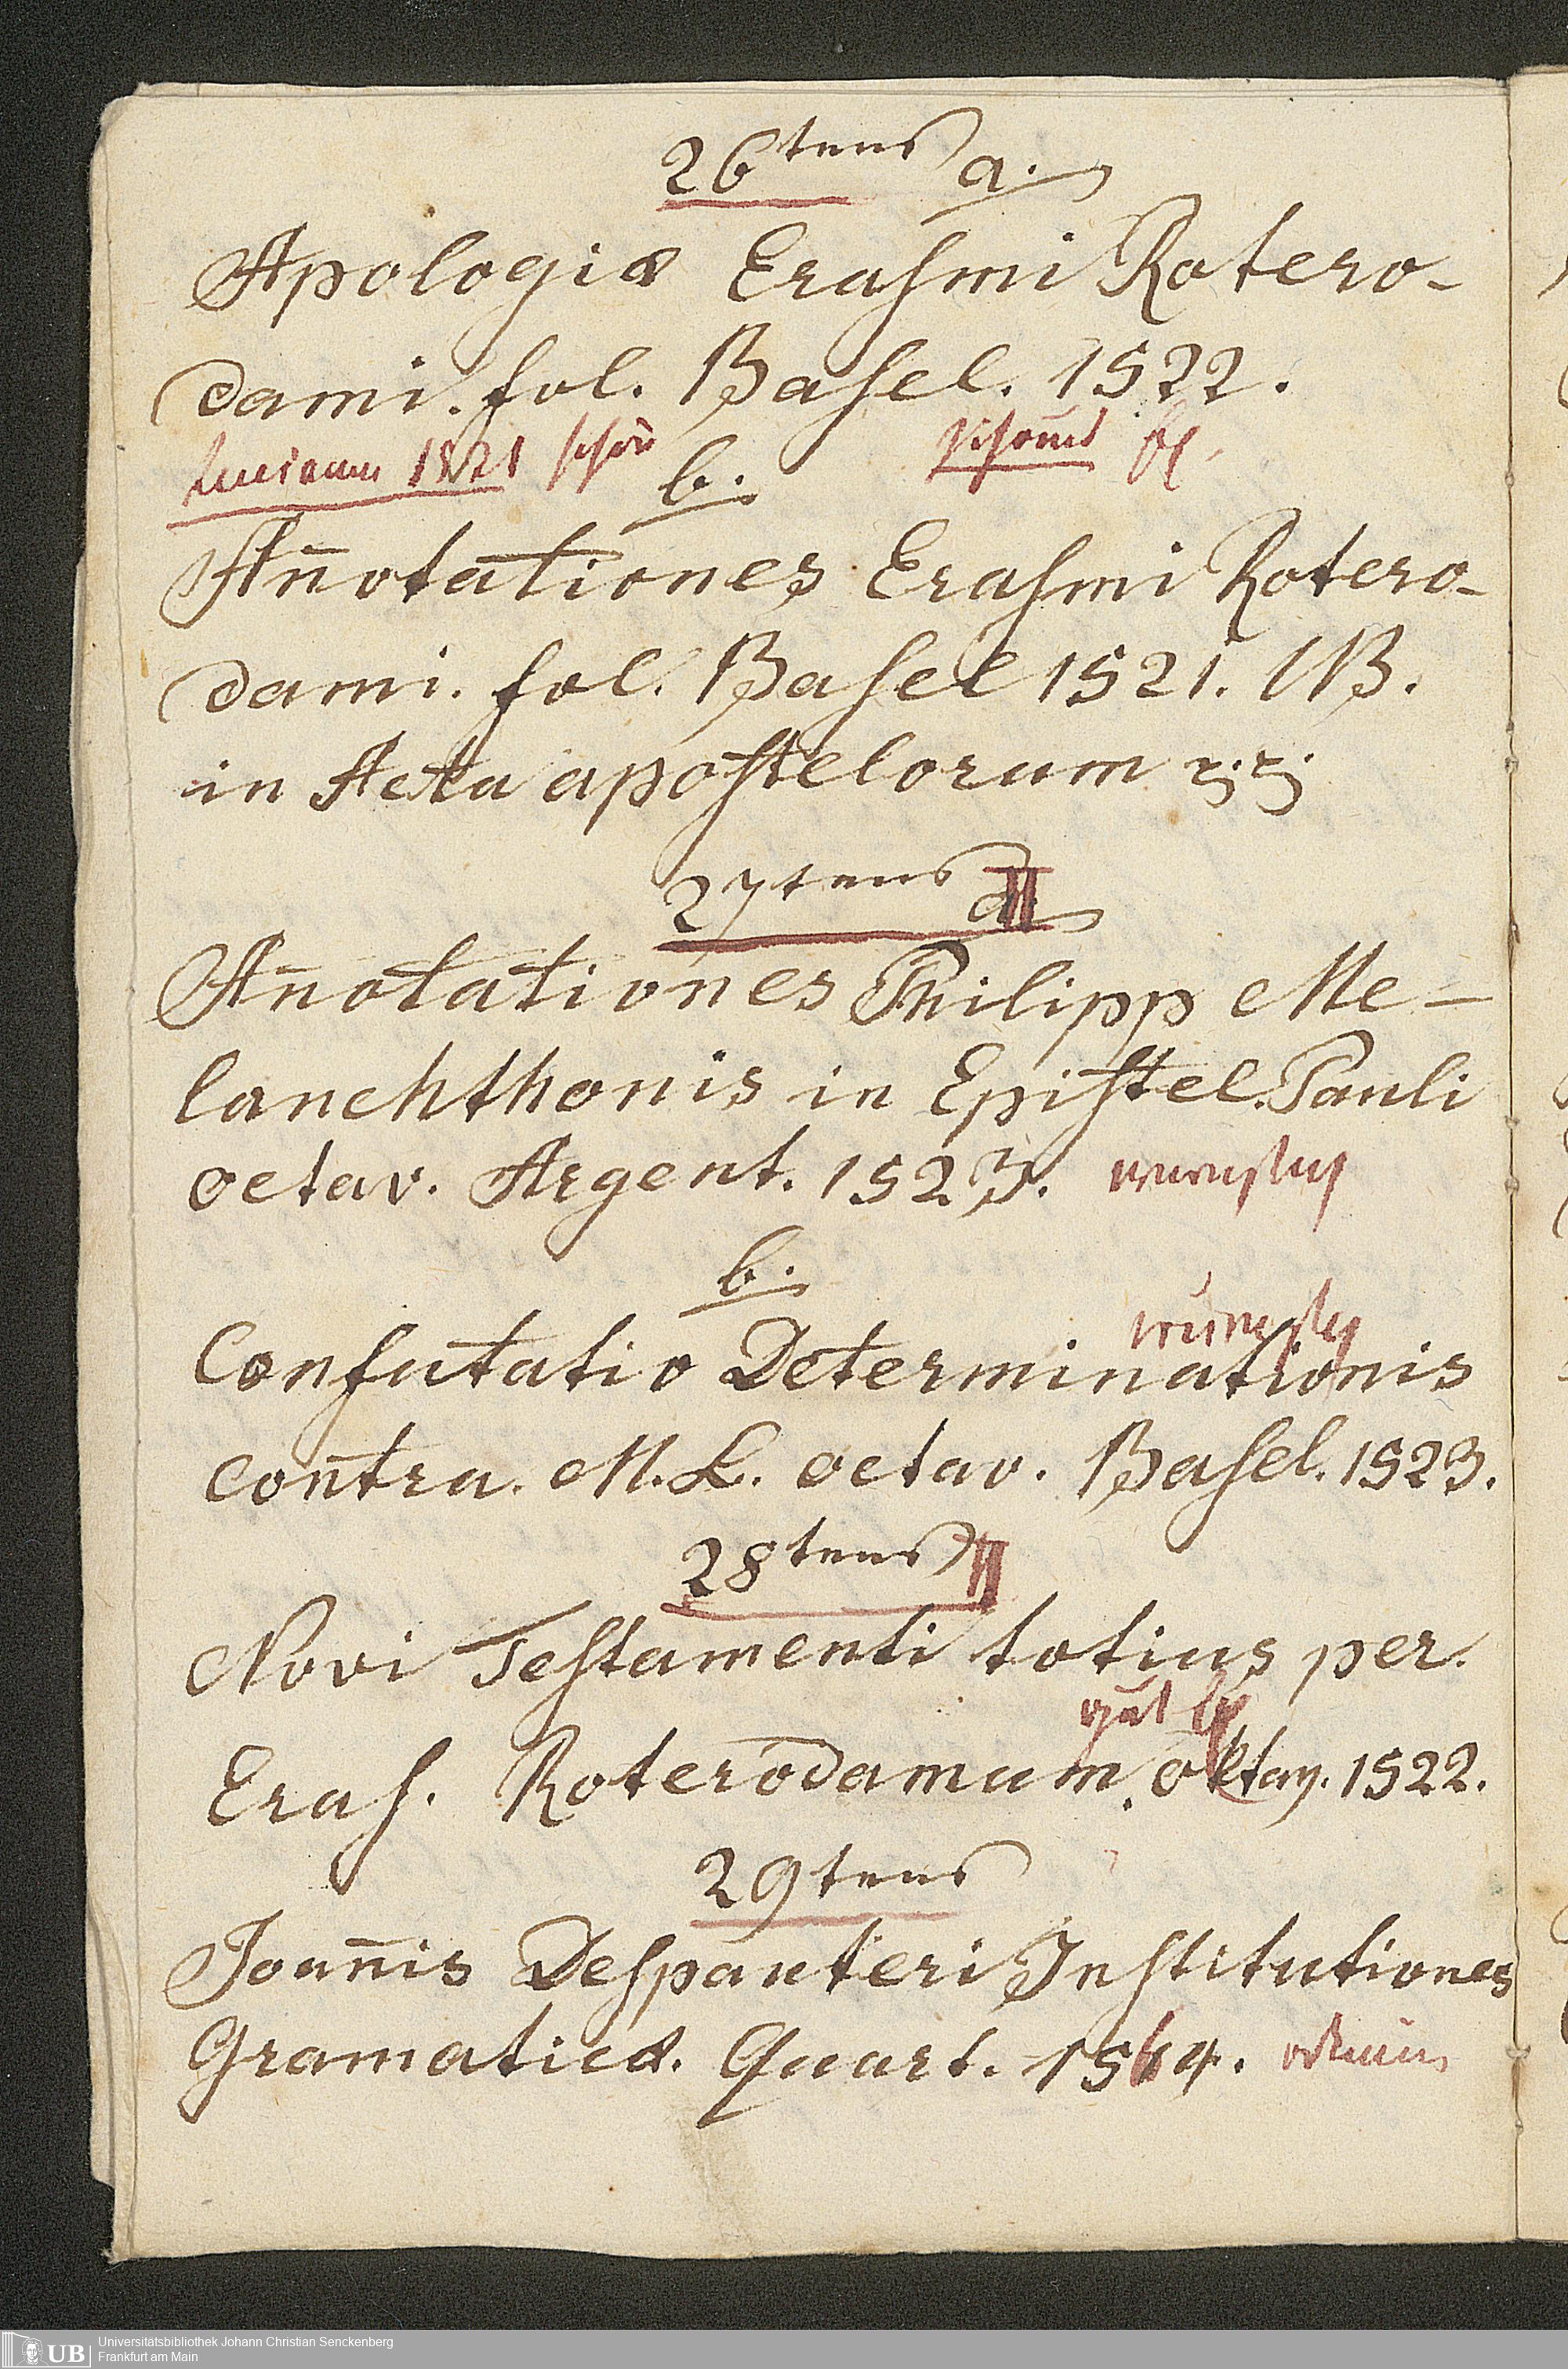 26tens a.
Apologiæ Erasmi Rotero-
dami. fol. Basel. 1522.
1521 schön
b.
An̄otationes Erasmi Rotero-
dami. fol. Basel 1521. NB.
in Acta apostelorum
27tens a II
An̄otationes Philipp Me-
lanchthonis in Epistel. Pauli
octav. Argent. 1523.
b.
Confutatio Determinationis
contra. M. L. octav. Basel. 1523.
28tens II
Novi Testamenti totius per.
gut
Eras. Roterodamum. oktav. 1522.
29tens
Joan̄is Despauteri Institutiones
Gramaticæ. Quart. 1564.
UB Universitätsbibliothek Johann Christian Senckenberg
Frankfurt am Main